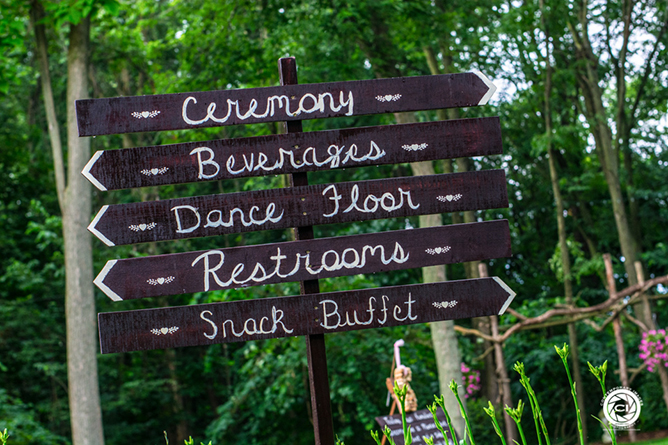 Ceremony
Beverages
Dance Floor
Restrooms
Snack Buffet